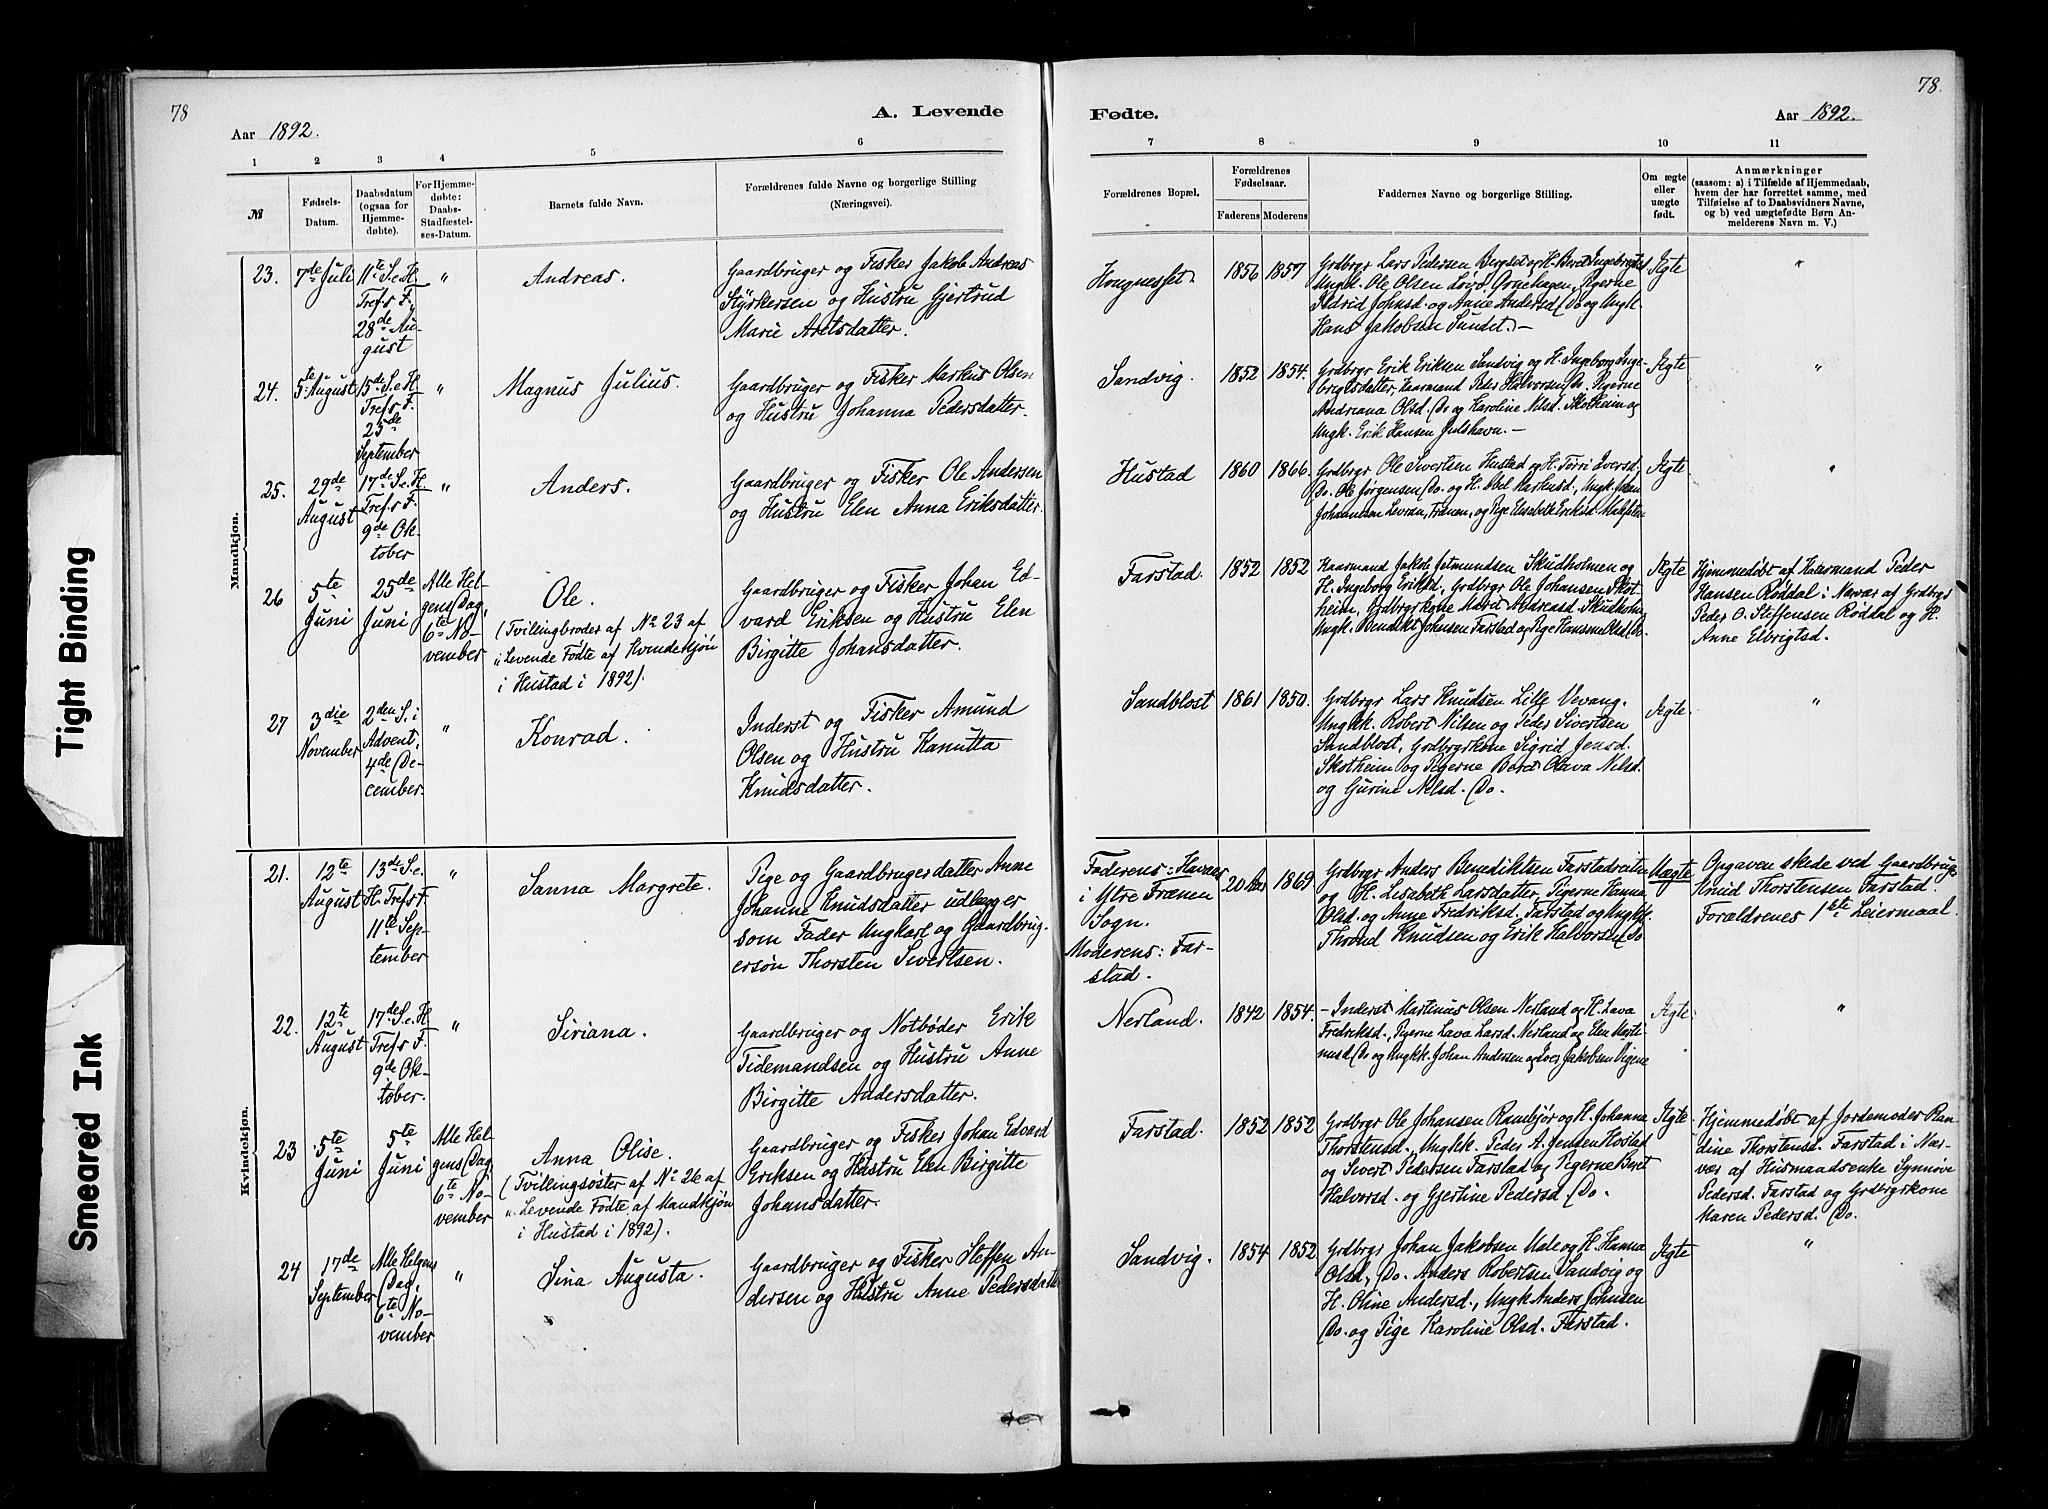 78
A. Levende
Aar 1892.
1 2 3 4 5 6
№
Fødsels-Datum.
Daabsdatum (ogsaa for Hjemme-døbte).
For Hjemme-døbte: Daabs-Stadfæstel-ses-Datum.
Barnets fulde Navn.
Forældrenes fulde Navne og borgerlige Stilling
(Næringsvei).
78.
Fødte.
Aar 1892.
7 8 9 10 11
Forældrenes Bopæl.
Forældrenes Fødselsaar.
Faderens Moderens
Faddernes Navne og borgerlige Stilling.
Om ægte eller uægte født.
Anmærkninger
(saasom: a) i Tilfælde af Hjemmedaab,
hvem der har forrettet samme, med
Tilføielse af to Daabsvidners Navne,
og b) ved uægtefødte Børn An-
melderens Navn m. V.)
Mandkjøn.
23.
7de Juli
11te S. e. H.
Tref's F.,
28de Au-
gust
"
Andreas.
Gaardbruger og Fisker Jakob Andreas
Styrkersen og Hustru Gjertrud
Marie Arntsdatter.
1856 1857
Grdbrgr Lars Pedersen Bergset og H. Beret Ingebrigtsd
Ungk. Ole Olsen Løvø, Ørnehagen, Pigerne
Sidrid Johnsd. og Anne Andersd Do og Ungk.
Hans Jakobsen Sundet. -
Ægte
"
24.
5te August
15de S. e. H.
Tref's F.
25de
September
"
Magnus Julius.
Gaardbruger og Fisker Markus Olsen
og Hustru Johanna Pedersdatter.
Sandvig.
1852 1854.
Grdbrgr Erik Eriksen Sandvig og H. Ingeborg Inge-
brigtsdatter, Kaarmand Peder Halvorsen Do. Pigerne
Andriana Olsd. Do og Karoline Nilsd. Skotheim og
Ungk. Erik Hansen Julshavn. -
Ægte
"
25.
29de
August
17de S. e. H.
Tref's F.
9de Ok-
tober
"
Anders.
Gaardbruger og Fisker Ole Andersen
og Hustru Elen Anna Eriksdatter.
Hustad
1860 1866.
Grdbrgr Ole Sivertsen Hustad og H. Tørri Iversd,
Do. Ole Jørgensen Do. og H. Abel Markusd., Ungk. Johan
Johannsen Levran, Frænen, og Pige Elisabeth Eriksd
Ægte
"
26
5te
Juni
25de
Juni
Alle Hel-
gens Dag,
6te No-
vember
Ole.
(Tvillingbroder af No 23 af
"Levende Fødte af Kvindekjøn
i Hustad i 1892).
Gaardbruger og Fisker Johan Ed-
vard Eriksen og Hustru Elen
Birgitte Johansdatter.
Farstad.
1852 1852
Kaarmand Jakob Jetmundsen Skudholmen og
H. Ingeborg Eriksd, Grdbrgr Ole Johansen Skot-
heim, Grdbrgrkone Maret Andreasd Skudholm.
Ungk. Bendikt Johnsen Farstad og Pige Hansine Olsd Do.
Ægte
Hjemmedøbt af Kaarmand Peder
Hansen Røddal i Nærvær af Grdbrgr
Peder O. Steffensen Røddal og H.
Anne Elbrigtsd.
27
3die
November
2den S. i
Advent,
4de De-
cember.
"
Konrad.
Inderst og Fisker Amund
Olsen og Hustru Kanutta
Knudsdatter.
Sandblost
1861 1850.
Grdbrgr Lars Knudsen Lille Vevang.
Ungkk. Robert Nilsen og Peder Sivertsen
Sandblost, Grdbrgrkone Sigrid Jensd.
Skotheim og Pigerne Beret Olava Nilsd.
og Gurine Nilsd. Do.
Ægte.
"
Kvindekjøn.
21.
12te
August
13de S. e.
H. Tref's F.
11te Sep-
tember
"
Sanna Margrete.
Pige og Gaardbrugerdatter Anne
Johanne Knudsdatter udlægger
som Fader Ungkarl og Gaardbrug-
ersøn Thorsten Sivertsen.
Faderens: Havnes
i Ytre Frænen
Sogn.
Moderens: Far-
stad.
20 Aar 1869
Grdbrgr Anders Benediktsen Farstadreiten
og H. Lisabeth Larsdatter, Pigerne Hanna
Olsd. og Anne Fredriksd. Farstad og Ungkk.
Thrond Knudsen og Erik Halvorsen Do
Uægte
Opgaven skede ved Gaardbrugr
Knud Thorstensen Farstad.
Forældrenes 1ste Leiermaal.
22.
12te
August
17de S. e. H.
Tref's F.
9de Ok-
tober.
"
Siriana.
Gaardbruger og Notbøder Erik
Tidemandsen og Hustru Anne
Birgitte Andersdatter.
Nerland.
1842 1854.
- Inderst Martinus Olsen Nerland og H. Lava
Fredriksd., Pigerne Lava Larsd. Nerland og Elen Marti-
nusd Do og Ungkk. Johan Andersen og Iver Jakobsen
Ægte.
"
23
5te
Juni
5te
Juni
Alle Hel-
gens Dag,
6te No-
vember
Anna Olise.
(Tvillingsøster af No 26 af
"Levende Fødte af Mandkjøn
i Hustad i 1892).
Gaardbruger og Fisker Johan Edvard
Eriksen og Hustru Elen Birgitte
Johansdatter.
Farstad.
1852 1852
Grdbrgr Ole Johansen Rambjør og H. Johanna
Thorstensd., Ungkk. Peder A. Jensen Hostad
og Sivert Pedersen Farstad og Pigerne Beret
Halvorsd. og Gjertine Pedersd. Do.
Ægte
Hjemmedøbt af Jordemoder Ran-
dine Thorstensd. Farstad i Nær-
vær af Husmandsenke Synnøve
Pedersd. Farstad og Grdbrgrkone
Maren Pedersd. Do.
24
17de
September
Alle Helgens
Dag,
6te No-
vember
"
Sina Augusta.
Gaardbruger og Fisker Steffen An-
dersen og Hustru Anne Pedersdatter
Sandvig.
1854 1852
Grdbrgr Johan Jakobsen Male og H. Hanna
Olsd, Do. Anders Robertsen Sandvig og
H. Oline Andersd., Ungk Anders Johnsen
Do. og Pige Karoline Olsd. Farstad.
Ægte
"
Tight Binding
Smeared Ink